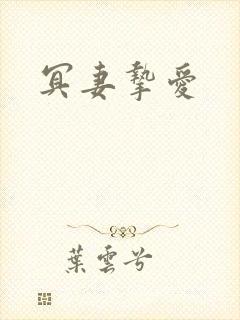 冥妻摯愛
葉雲兮